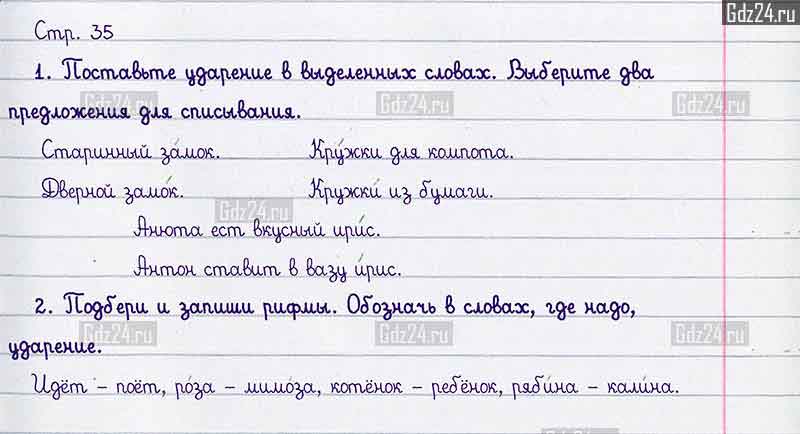 Gdz24.ru
Стр. 35
1. Поставьте ударение в выделенных словах. Выберите два
предложения для списывания.
Gdz24.ru Gdz24.ru Gdz24.ru
Старинный за́мок. Кру́жки для компота.
Дверной замо́к. Кружки́ из бумаги.
Gdz24.ru
Анюта ест вкусный ири́с.
Антон ставит в вазу и́рис.
2. Подбери и запиши рифмы. Обозначь в словах, где надо,
ударение.
Gdz24.ru Gdz24.ru Gdz24.ru
Идёт – поёт, ро́за – мимо́за, котёнок – ребёнок, ряби́на – кали́на.
Gdz24.ru